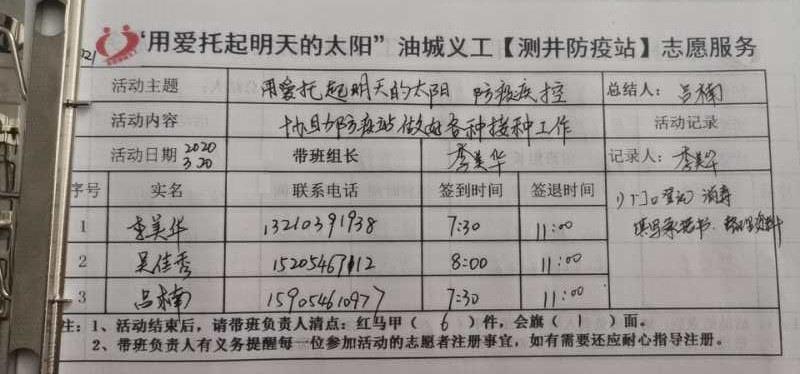 “用爱托起明天的太阳”油城义工【测井防疫站】志愿服务
活动主题 用爱托起明天的太阳 防疫疾控 总结人：吕楠
活动内容 协助防疫站做好各种接种工作 活动记录
活动日期 2020 3.20 带班组长 李美华 记录人：李美华
序号 实名 联系电话 签到时间 签退时间
1 李美华 13210391938 7:30 11:00
1)门口登记 消毒
填写承诺书、整理资料
2 吴佳秀 15205467112 8:00 11:00
3 吕楠 15905461097 7:30 11:00
注：1、活动结束后，请带班负责人清点：红马甲（ 6 ）件，会旗（ 1 ）面。
2、带班负责人有义务提醒每一位参加活动的志愿者注册事宜，如有需要还应耐心指导注册。